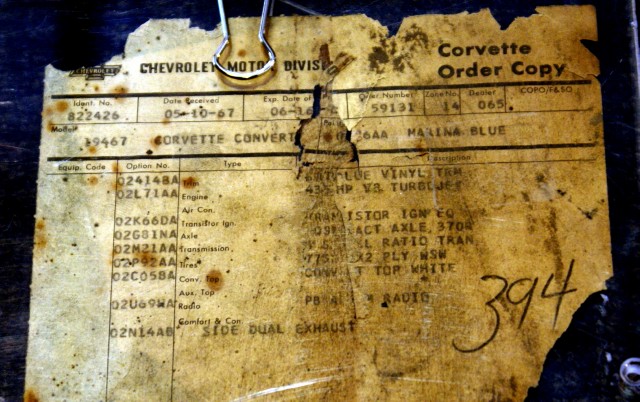 CHEVROLET
CHEVROLET MOTO DIVIS Corvette
Order Copy
Ident. No. Date Received Exp. Date of der Number Zone No. Dealer COPO/F&SO
822426 05-10-67 06-1 59131 14 065
Model
19467 CORVETTE CONVERT 26AA MARINA BLUE
Equip. Code Option No. Type Description
02414BA Trim BLUE VINYL TRM
02L71AA Engine 435HP V8 TURBOJET
Air Con.
02K66DA Transistor Ign. TRANSISTOR IGN EQ
02G81NA Axle POS ACT AXLE, 370R
02M21AA Transmission RATIO TRAN
02P92AA Tires 775 X2 PLY WSW
02C05BA Conv. Top CONV T TOP WHITE
Aux. Top
02U69WA Radio PB RADIO
Comfort & Con
02N14AB SIDE DUAL EXHAUST
394